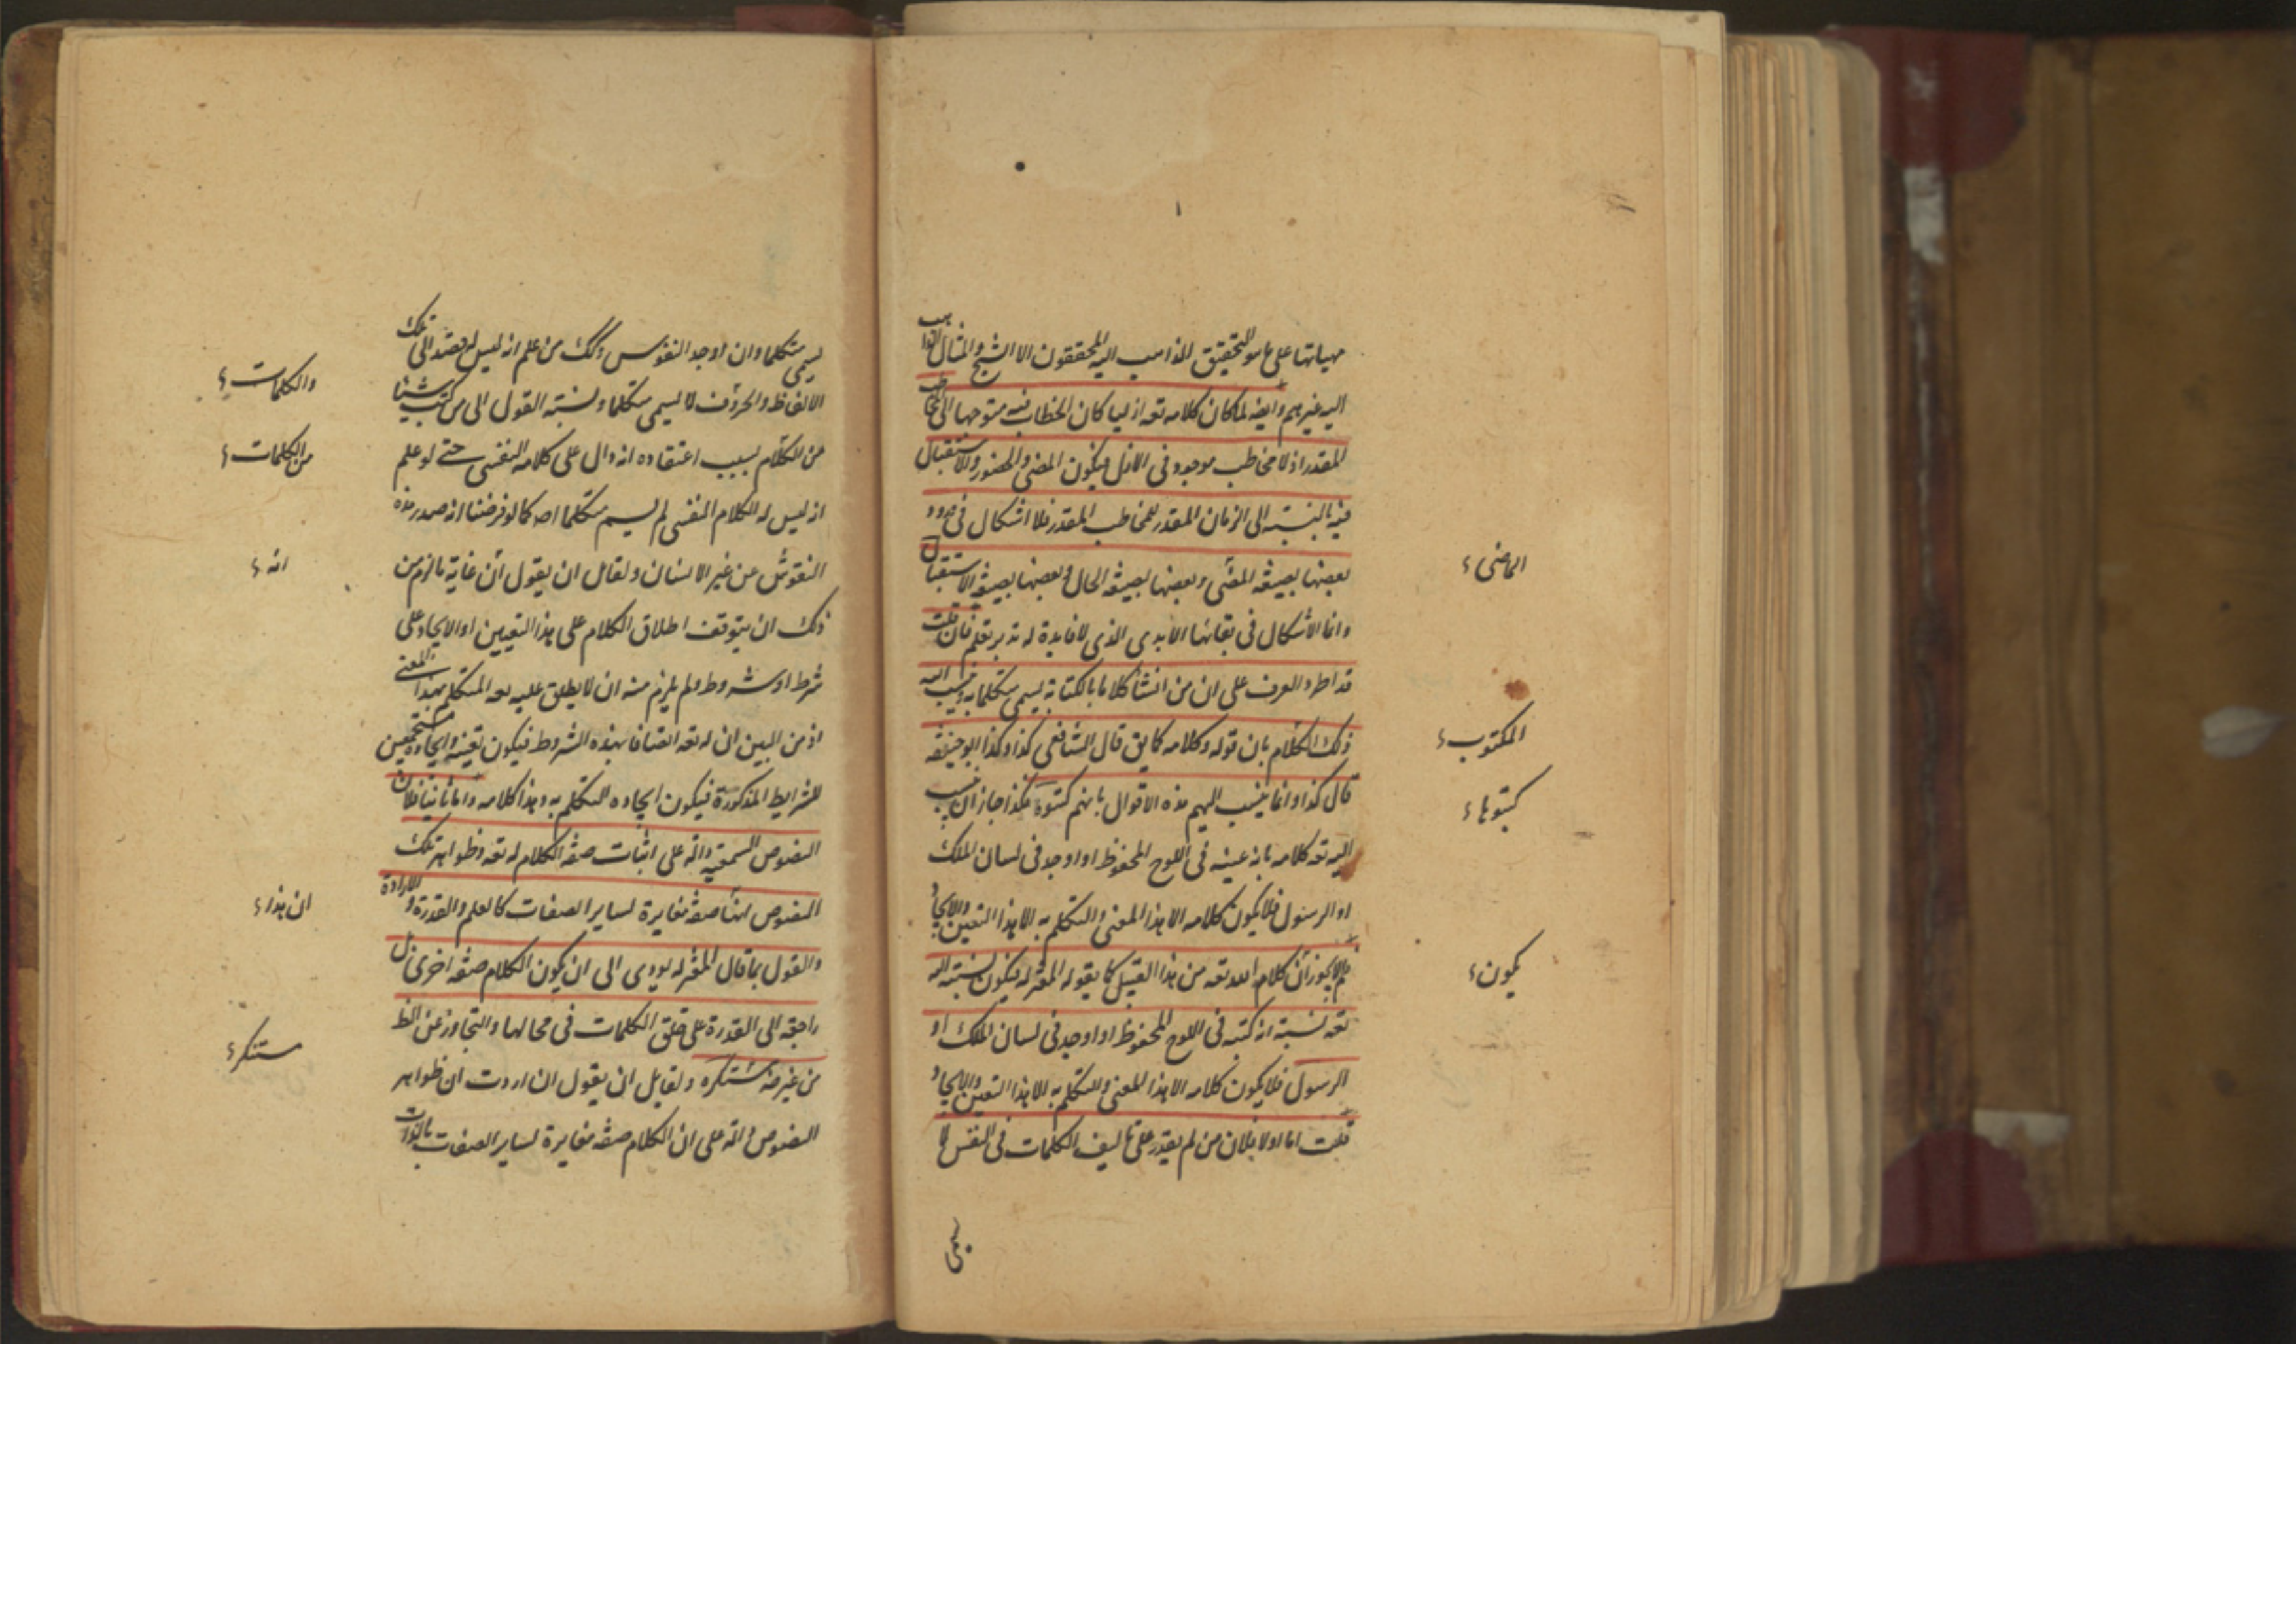 مهياتها على ما هو التحقيق الذاهب اليه المحققون الا الشبح والمثال الذاهب
اليه غيرهم وايضه لما كان كلامه تعه ازليا كان الخطاب فيه متوجها الى مخاطب
المقدر اذ لا مخاطب موجود فى الازل فيكون المضى والحضور والاستقبال
فيه بالنسبته الى الزمان المقدر للمخاطب المقدر فلا اشكال فى ورود
بعضها بصيغه المضى وبعضها بصيغه الحال وبعضها بصيغه الاستقبال
الماضى
وانما الاشكال فى بقائها الابدى الذى لا فايدة له تدبر تعلم فان قلت
قد اطرد العرف على ان من انشأ كلاما بالكتابة يسمى متكلما به وينسب اليه
ذلك الكلام بان قوله وكلامه كما يق قال الشافعى كذا وكذا ابو حنيفه
المكتوب
قال كذا وانما ينسب اليهم هذه الاقوال بانهم كتبوه فكذا جاز ان ينسب
كتبوها
اليه تعه كلامه بانه عينه فى اللوح المحفوظ او اوجد فى لسان الملك
او الرسول فلا يكون كلامه الا هذا المعنى والتكلم به الا هذا التعين والايجاد
لم لا يجوز ان كلام الله تعه من هذا القبيل كما يقوله المعتزله فيكون نسبته اليه
يكون
تعه نسبته انه كتبه فى اللوح المحفوظ او اوجد فى لسان الملك او
الرسول فلا يكون كلامه الا هذا المعنى والتكلم به الا هذا التعين والايجاد
قلت اما اولا فلان من لم يقدر على تاليف الكلمات فى النفس لا
يسمى
يسمى متكلما وان اوجد النقوس وكك من علم انه ليس له قصد الى تلك
الالفاظ والحروف لا يسمى متكلما ونسبته القول الى من كتب شيئا
والكلمات
من الكلام بسبب اعتقاده انه دال على كلامه النفسى حتى لو علم
من الكلمات
انه ليس له الكلام النفسى لم يسم متكلما اصـ كما لو فرضنا انه صدر هذه
النقوش عن غير الانسان ولقايل ان يقول ان غاية ما لزم من
انه
ذلك ان يتوقف اطلاق الكلام على هذا التعيين او الايجاد على
شرط او شروط ولم يلزم منه ان لا يطلق عليه تعه المتكلم بهذا المعنى
اذ من البين ان له تعه اتصافا بهذه الشروط فيكون تعينه وايجاده مستجمعين
للشرايط المذكورة فيكون ايجاده التكلم به وهذا كلامه واما ثانيا فلان
النصوص السمعيه داله على اثبات صفه الكلام له تعه وظواهر تلك
النصوص انها صفه مغايرة لساير الصفات كالعلم والقدرة والارادة
ان هذا
والقول بما قال المعتزله يودى الى ان يكون الكلام صفه اخرى بل
راجعه الى القدرة على خلق الكلمات فى محالها والتجاوز عن الظ
من غير ضه مستنكره ولقايل ان يقول ان اردت ان ظواهر
مستنكر
النصوص داله على ان الكلام صفه مغايرة لساير الصفات بالذات